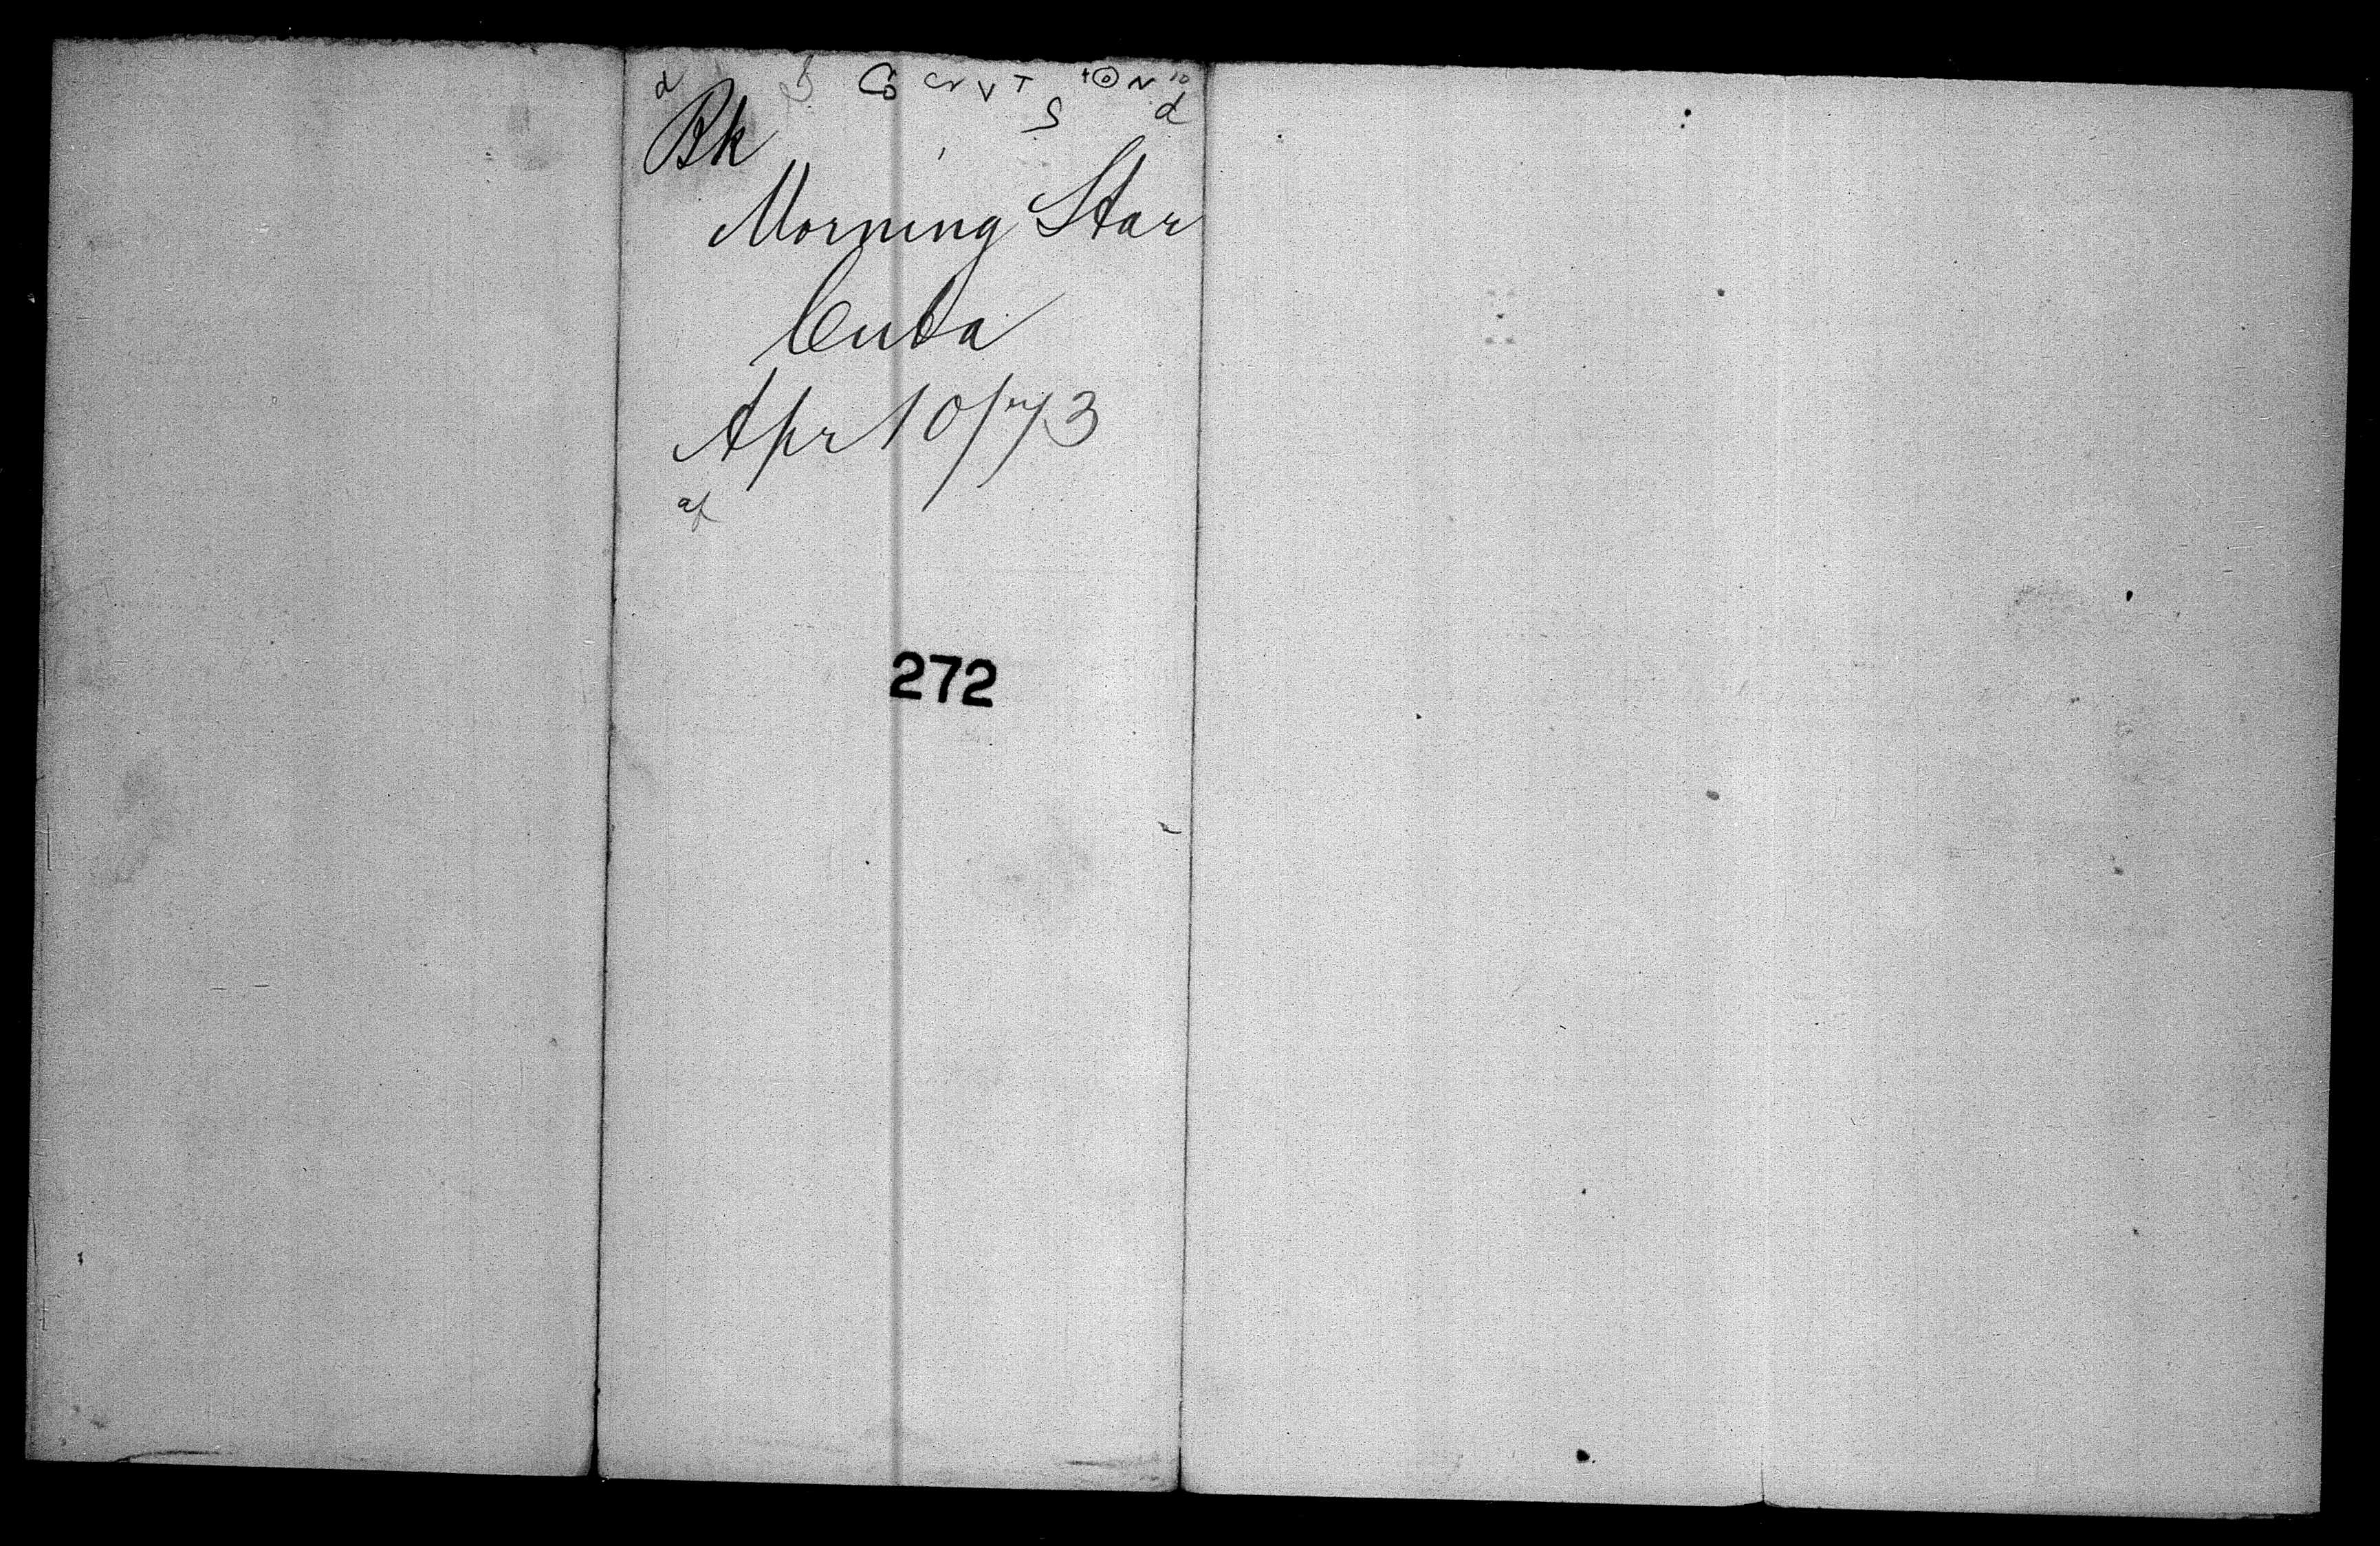 d Co Cr V T N 10
S d
Bk
Morning Star
Cuba
Apr 10/73
af
272